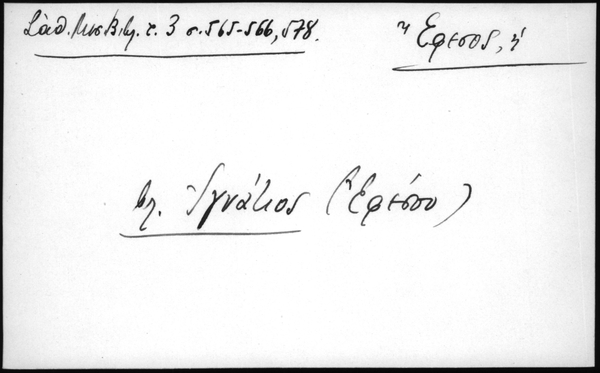 Σάθ. Μεσ. Βιβλ. τ. 3 σ. 565-566, 578.
Ἔφεσος, ἡ
βλ. Ἰγνάτιος (Ἐφέσου)